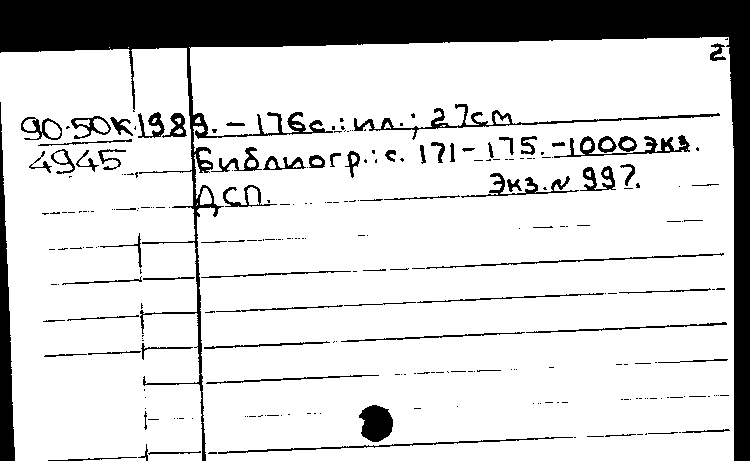 2
90-50К 1989. – 176 с.: ил.; 27 см
4945 Библиогр.: с. 171-175. -1000 экз.
ДСП. Экз. № 997.